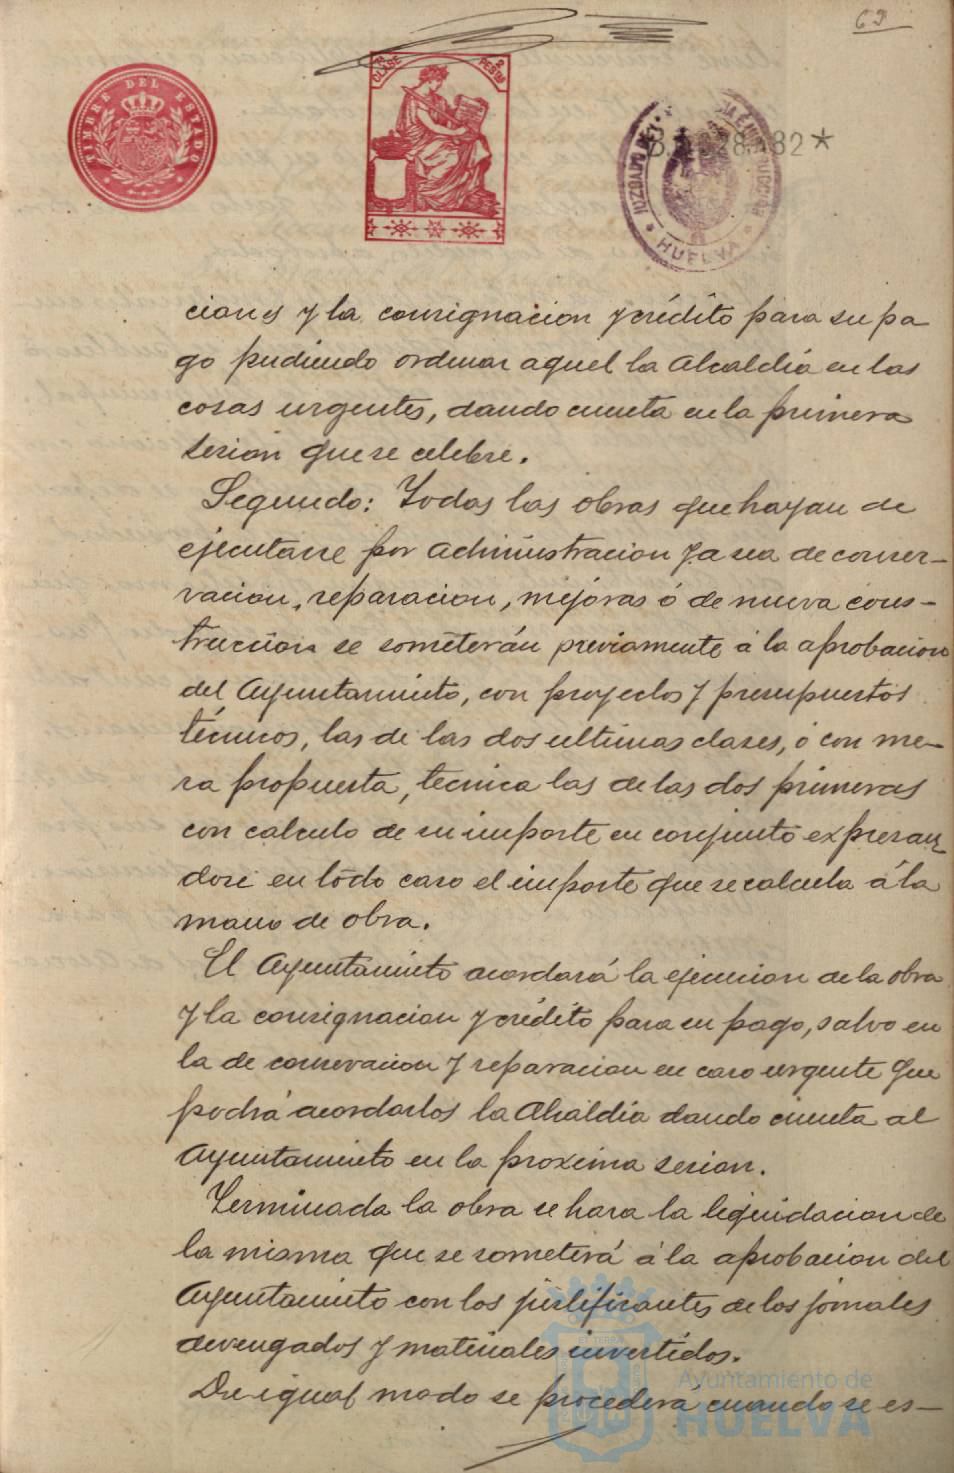 69
TIMBRE DEL ESTADO
CLASE 8ª 2 PESTAS
JUZGADO DE 1ª INSTANCIA E INSTRUCCION
HUELVA
ciones y la consignacion y crédito para su pa
go pudiendo ordenar aquel la Alcaldía en las
cosas urgentes, dando cuenta en la primera
sesion que se celebre.
Segundo: Todas las obras que hayan de
ejecutarse por administracion ya sea de conser-
vacion, reparacion, mejoras ó de nueva cons-
truccion se someterán previamente á la aprobacion
del Ayuntamiento, con proyectos y presupuestos
técnicos, las de las dos ultimas clases, ó con me-
ra propuesta, tecnica las de las dos primeras
con calculo de su importe en conjunto expresan
dose en todo caso el importe que se calcula á la
mano de obra.
El Ayuntamiento acordará la ejecucion de la obra
y la consignacion y crédito para su pago, salvo en
la de conservacion y reparacion en caso urgente que
podrá acordarlos la Alcaldía dando cuenta al
Ayuntamiento en la proxima sesion.
Terminada la obra se hara la liquidacion de
la misma que se someterá á la aprobacion del
Ayuntamiento con los justificantes de los jornales
devengados y materiales invertidos.
De igual modo se procederá cuando se es-
Ayuntamiento de
HUELVA